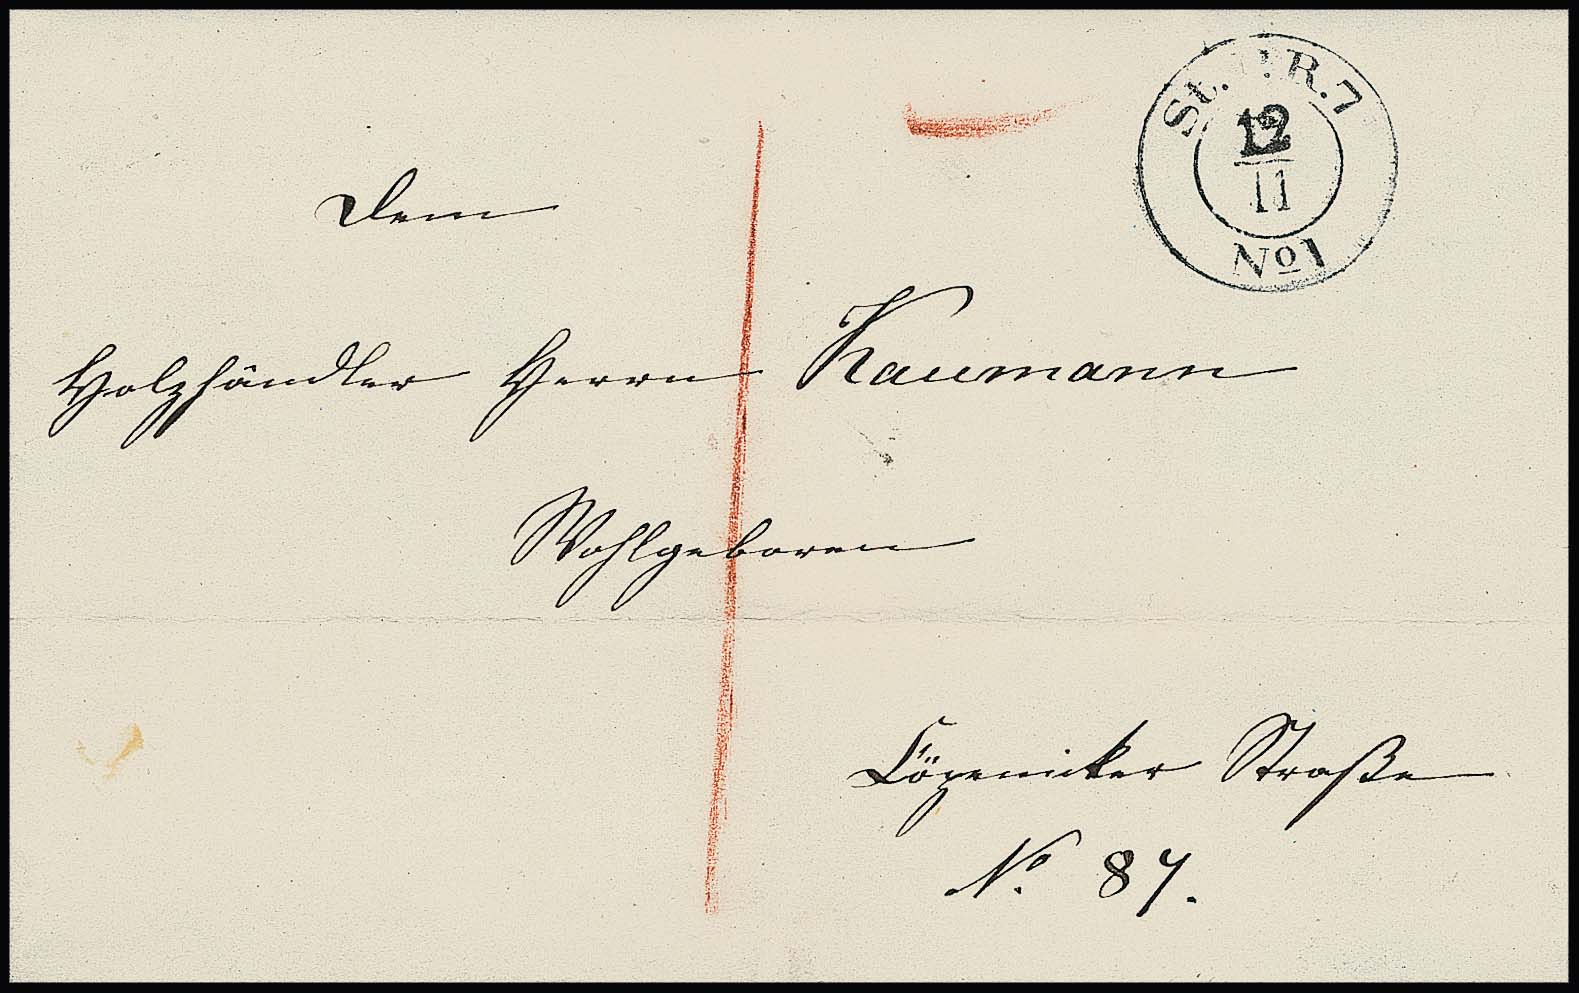 St. P. R. 7
12
11
No 1
Dem
Holzhändler Herrn Kaumann
Wohlgeboren
Cöpenicker Straße
No. 87.